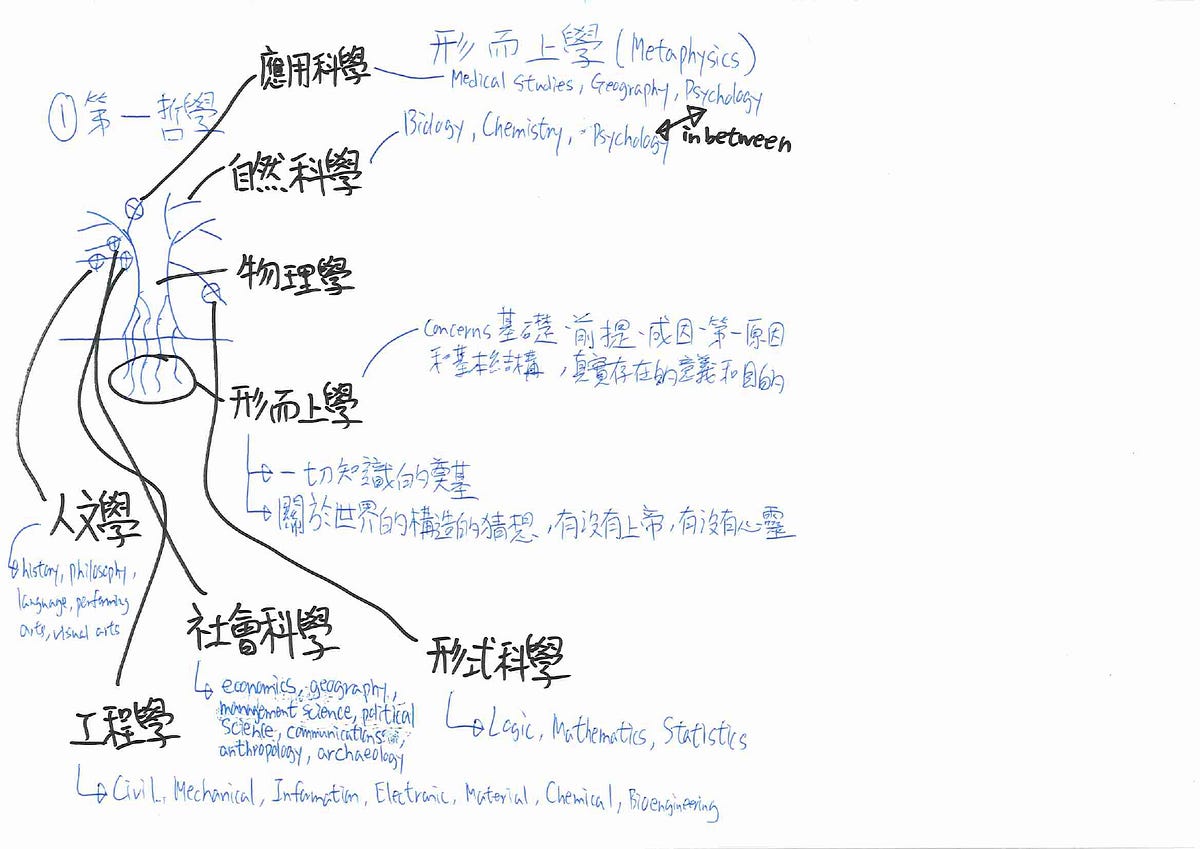 形而上學 (Metaphysics)
應用科學
Medical Studies, Geography, Psychology
① 第一哲學
Biology, Chemistry, Psychology
in between
自然科學
物理學
Concerns 基礎、前提、成因、第一原因
和基本結構，真實存在的意義和目的
形而上學
一切知識的奠基
關於世界的構造的猜想，有沒有上帝，有沒有心靈
人文學
history, philosophy,
language, performing
arts, visual arts
社會科學
economics, geography,
management science, political
science, communications,
anthropology, archaeology
形式科學
Logic, Mathematics, Statistics
工程學
Civil, Mechanical, Information, Electronic, Material, Chemical, Bioengineering